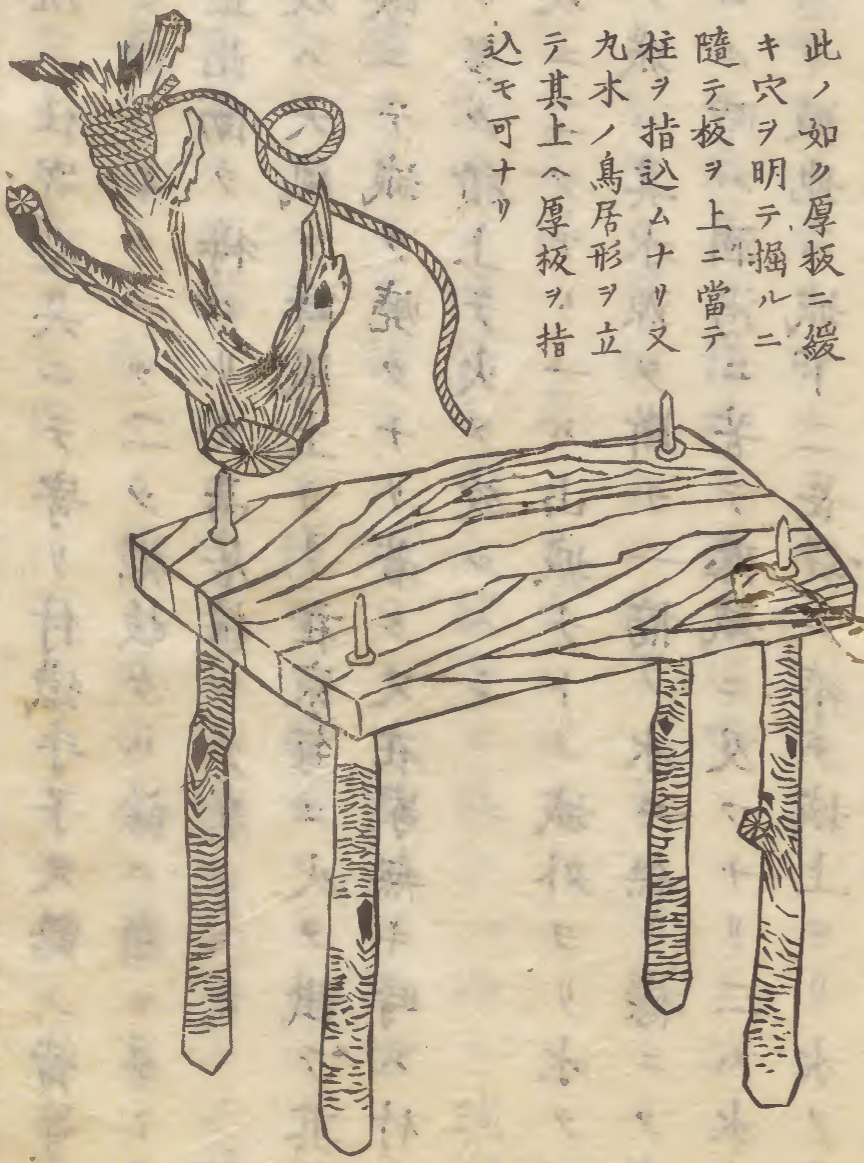 此ノ如ク厚板ニ緩
キ穴ヲ明テ掘ルニ
隨テ板ヲ上ニ當テ
柱ヲ指込ムナリ又
丸木ノ鳥居形ヲ立
テ其上ヘ厚板ヲ指
込モ可ナリ